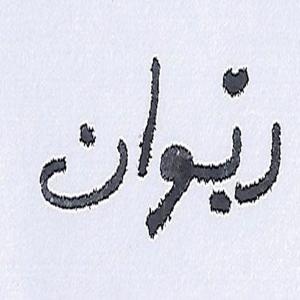 زبوان